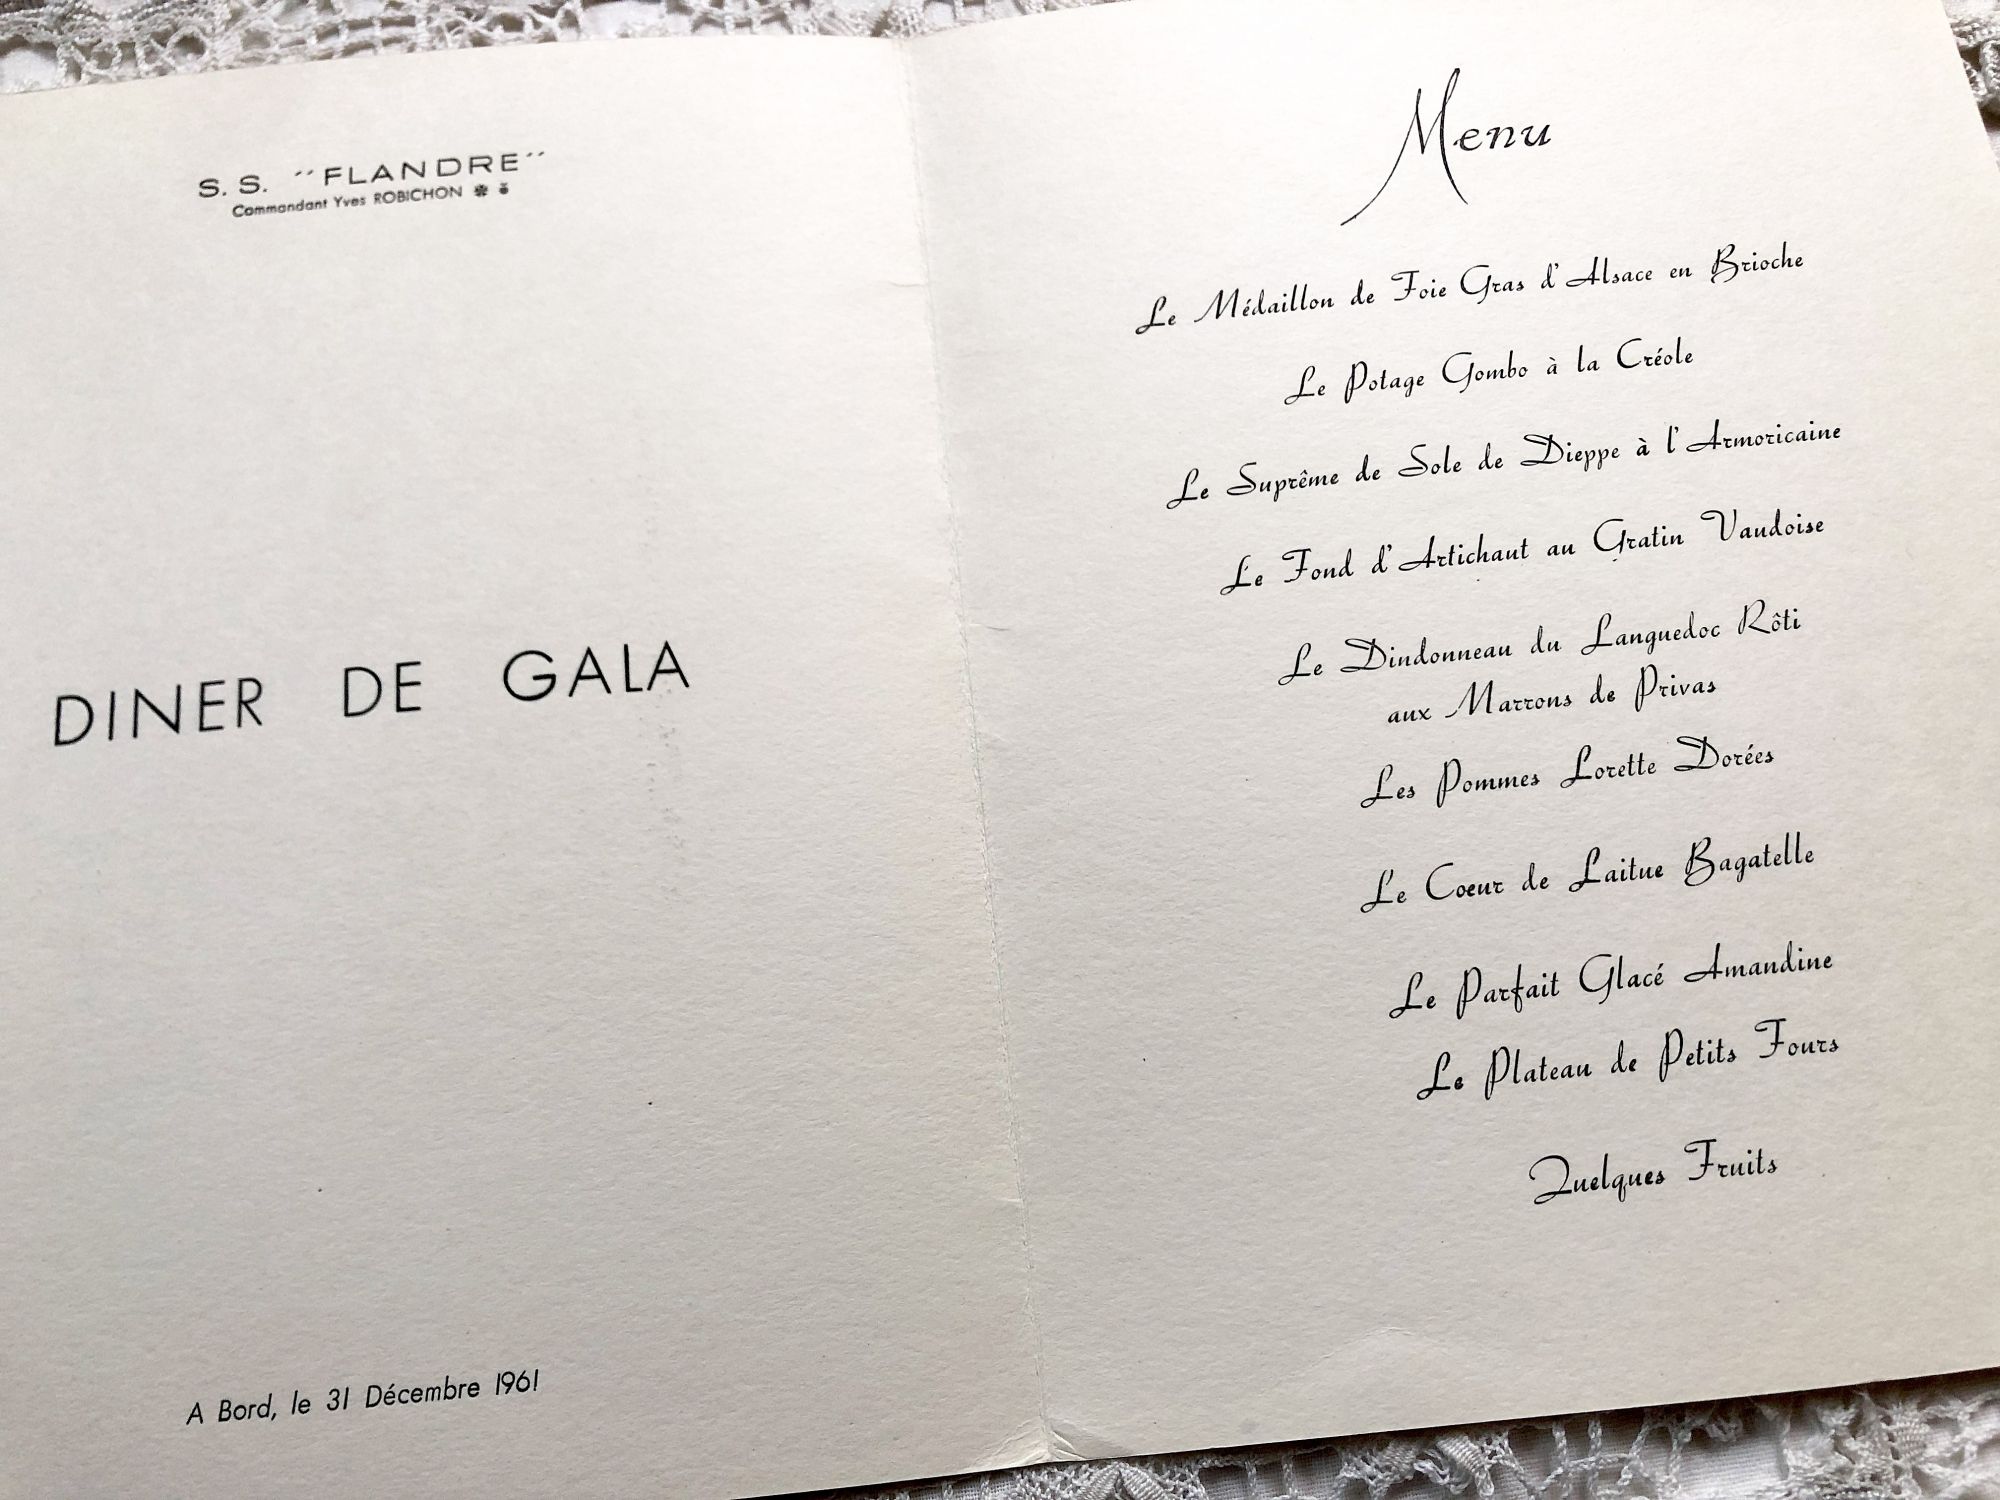 S. S. "FLANDRE"
Commandant Yves ROBICHON
DINER DE GALA
A Bord, le 31 Décembre 1961
Menu
Le Médaillon de Foie Gras d'Alsace en Brioche
Le Potage Gombo à la Créole
Le Suprême de Sole de Dieppe à l'Armoricaine
Le Fond d'Artichaut au Gratin Vaudoise
Le Dindonneau du Languedoc Rôti
aux Marrons de Privas
Les Pommes Lorette Dorées
Le Coeur de Laitue Bagatelle
Le Parfait Glacé Amandine
Le Plateau de Petits Fours
Quelques Fruits